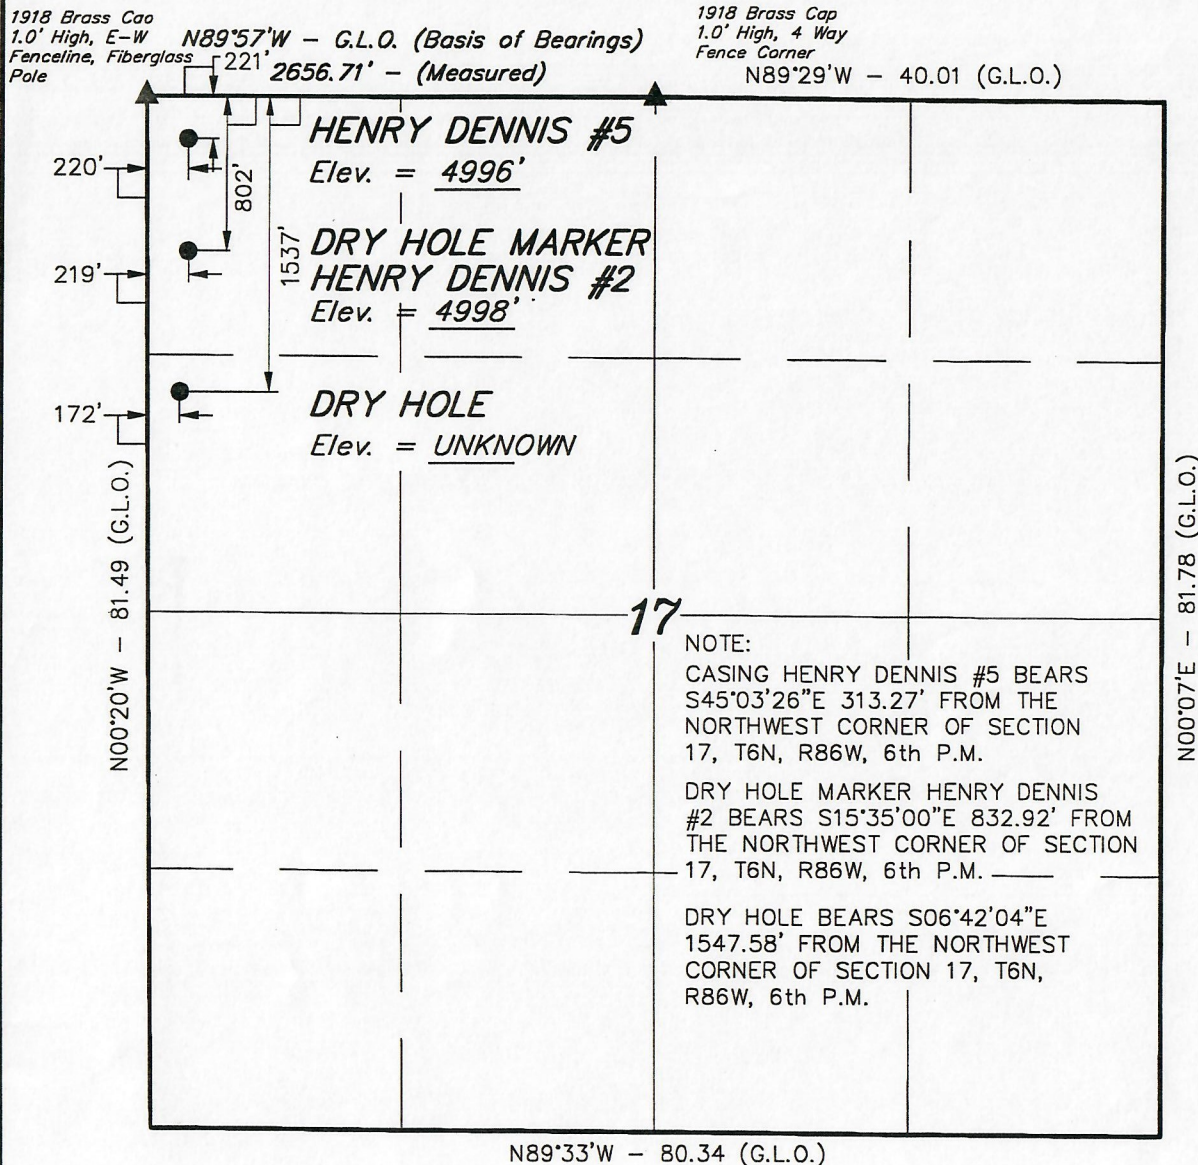 1918 Brass Cao
1.0' High, E-W
Fenceline, Fiberglass
Pole
N89°57'W - G.L.O. (Basis of Bearings)
221'
2656.71' - (Measured)
1918 Brass Cap
1.0' High, 4 Way
Fence Corner
N89°29'W - 40.01 (G.L.O.)
HENRY DENNIS #5
Elev. = 4996'
220'
802'
DRY HOLE MARKER
HENRY DENNIS #2
Elev. = 4998'
219'
1537'
DRY HOLE
Elev. = UNKNOWN
172'
N00°20'W - 81.49 (G.L.O.)
N00°07'E - 81.78 (G.L.O.)
17
NOTE:
CASING HENRY DENNIS #5 BEARS
S45°03'26"E 313.27' FROM THE
NORTHWEST CORNER OF SECTION
17, T6N, R86W, 6th P.M.
DRY HOLE MARKER HENRY DENNIS
#2 BEARS S15°35'00"E 832.92' FROM
THE NORTHWEST CORNER OF SECTION
17, T6N, R86W, 6th P.M.
DRY HOLE BEARS S06°42'04"E
1547.58' FROM THE NORTHWEST
CORNER OF SECTION 17, T6N,
R86W, 6th P.M.
N89°33'W - 80.34 (G.L.O.)